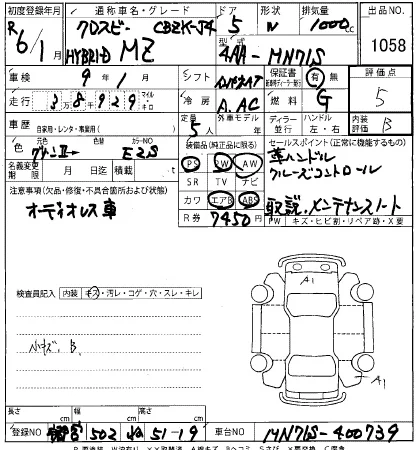 初度登録年月 通称車名・グレード ドア 形状 排気量 出品NO
R6/1月 クロスビー CBZK-J4 5 W 1000cc 1058
HYBRID MZ 型式 4AA-MN71S
車検 9年1月 シフト 保証書 有 無 評価点
走行 3万8千929 マイル キロ 冷房 A.AC 燃料 G 5
車歴 自家用・レンタ・事業用( ) 定員 5人 外車モデル ディーラー 並行 ハンドル 左・右 内装 B
色 元色 カラーNO E2S 装備品(純正品に限る) セールスポイント(正常に機能するもの)
名義変更期限 月 日迄 積載 t PS PW AW 革ハンドル
SR TV ナビ クルーズコントロール
注意事項(欠品・修復・不具合箇所および状態) カワ エアB ABS 取説、メンテナンスノート
オーディオレス車 R券 7450円 PW キズ・ヒビ割・リペア跡・X要
検査員記入 内装 キズ・汚レ・コゲ・穴・スレ・キレ A1
小キズ、B A1
長さ cm 幅 cm 高さ cm
登録NO 502 51-19 車台NO MN71S-400739